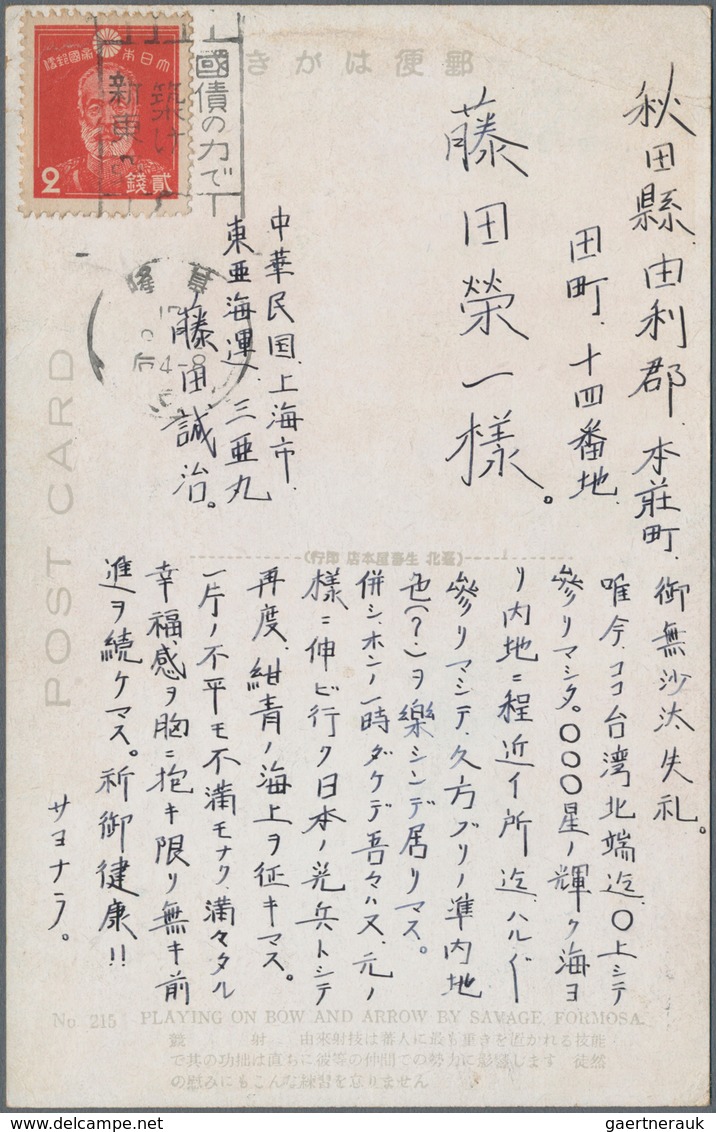 郵便はがき
大日本帝國郵便
2
貳錢
國債の力で
築け
新東
基隆
秋田縣由利郡本莊町
田町、十四番地
藤田榮一様。
中華民国、上海市、
東亜海運、三亜丸
藤田誠治。
POST CARD
(臺北 生番屋本店 印行)
御無沙汰失礼。
唯今、ココ台湾北端迄、〇上シテ
參リマシタ。〇〇〇星ノ輝ク海ヨ
リ内地ニ程近イ所迄、ハルバル
參リマシテ、久方ブリノ準内地
色(?)ヲ樂シンデ居リマス。
併シ、ホンノ一時ダケデ吾々ハ又、元ノ
様ニ伸ビ行ク日本ノ光兵トシテ
再度、紺青ノ海上ヲ征キマス。
一片ノ不平モ不満モナク、満々タル
幸福感ヲ胸ニ抱キ限リ無キ前
進ヲ続ケマス。祈御健康!!
サヨナラ。
No. 215 PLAYING ON BOW AND ARROW BY SAVAGE, FORMOSA.
射 由來射技は蕃人に最も重きを置かれる技能
で其の功拙は直ちに彼等の仲間での勢力に影響します 徒然
の慰みにもこんな練習を怠りません
gaertnerauk